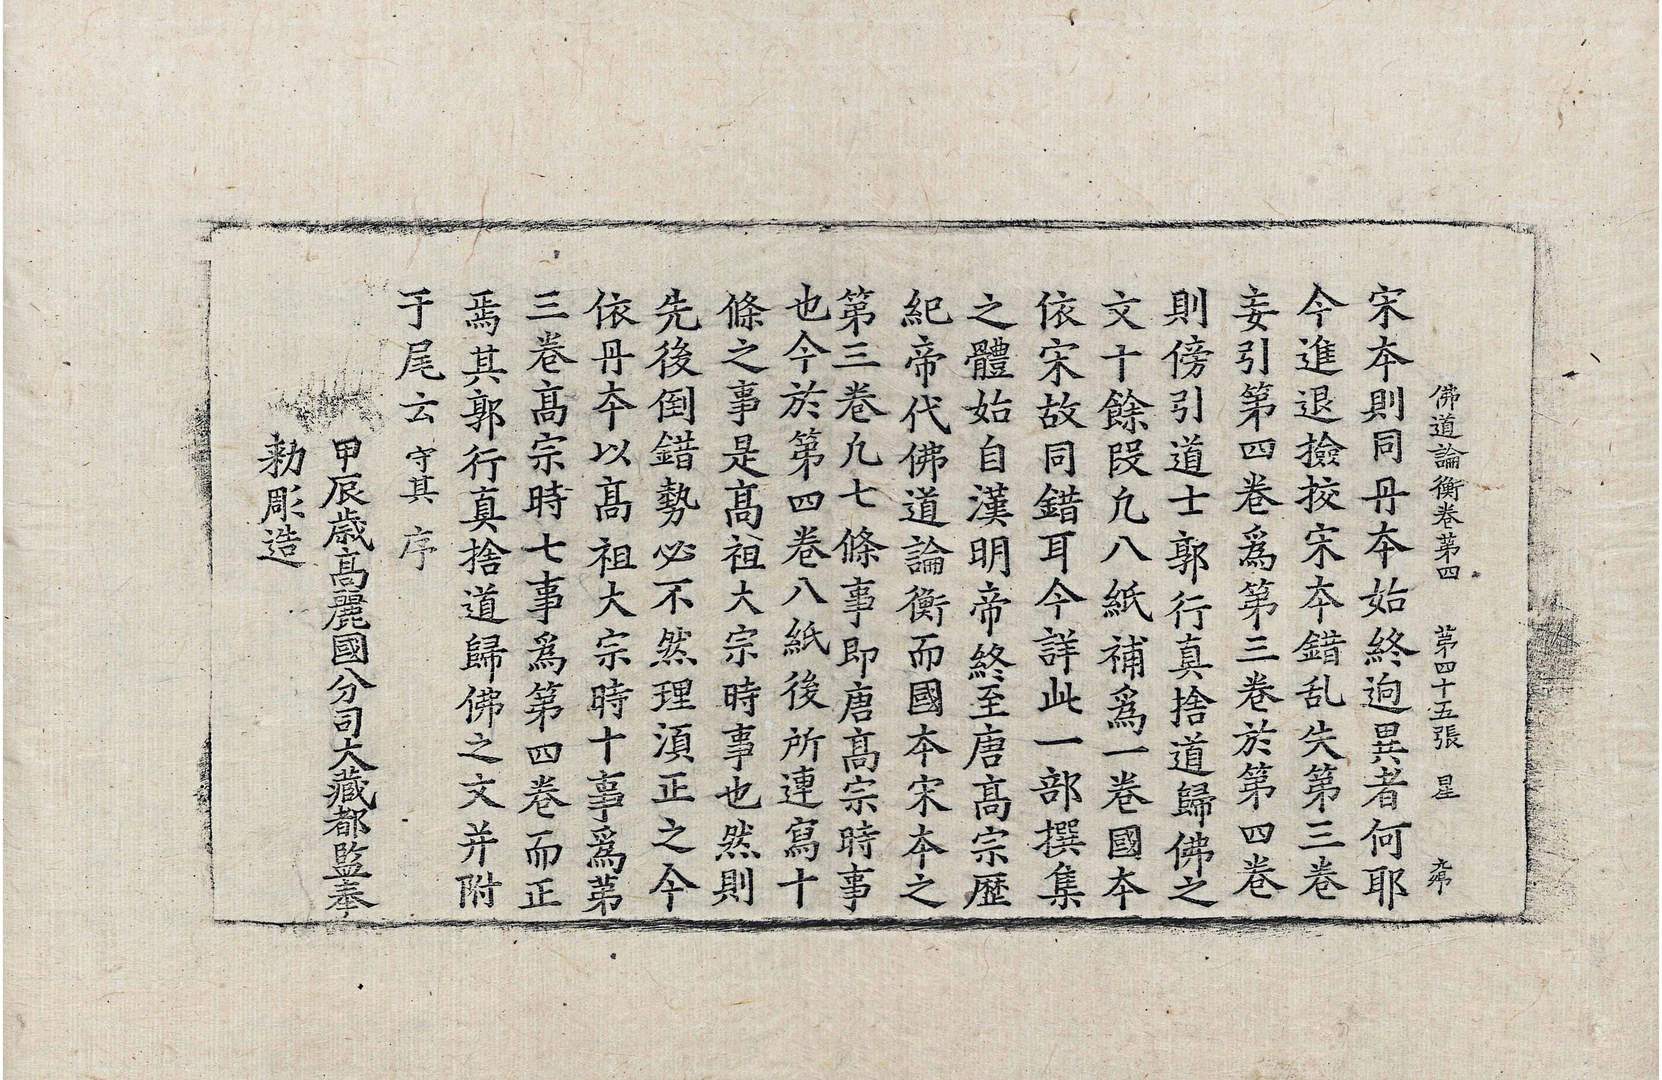 佛道論衡卷第四 第四十五張 星
宋夲則同丹夲始終逈異者何耶
今進退撿挍宋夲錯乱失第三卷
妄引第四卷爲第三卷於第四卷
則傍引道士郭行真捨道歸佛之
文十餘段凢八紙補爲一卷國夲
依宋故同錯耳今詳此一部撰集
之體始自漢明帝終至唐髙宗歷
紀帝代佛道論衡而國夲宋夲之
第三卷凢七條事即唐髙宗時事
也今於第四卷八紙後所連寫十
條之事是髙祖大宗時事也然則
先後倒錯勢必不然理湏正之今
依丹夲以髙祖大宗時十事爲第
三卷髙宗時七事爲第四卷而正
焉其郭行真捨道歸佛之文并附
于尾云守其序
甲辰歲高麗國分司大藏都監奉
勑彫造